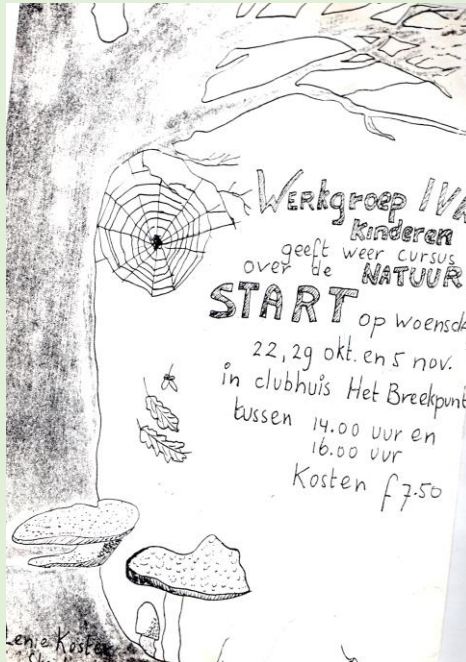 Werkgroep IV
Kinderen
geeft weer cursus
over de NATUUR
START op woensd
22, 29 okt. en 5 nov.
in clubhuis Het Breekpunt
tussen 14.00 uur en
16.00 uur
Kosten f 7.50
Lenie Koster